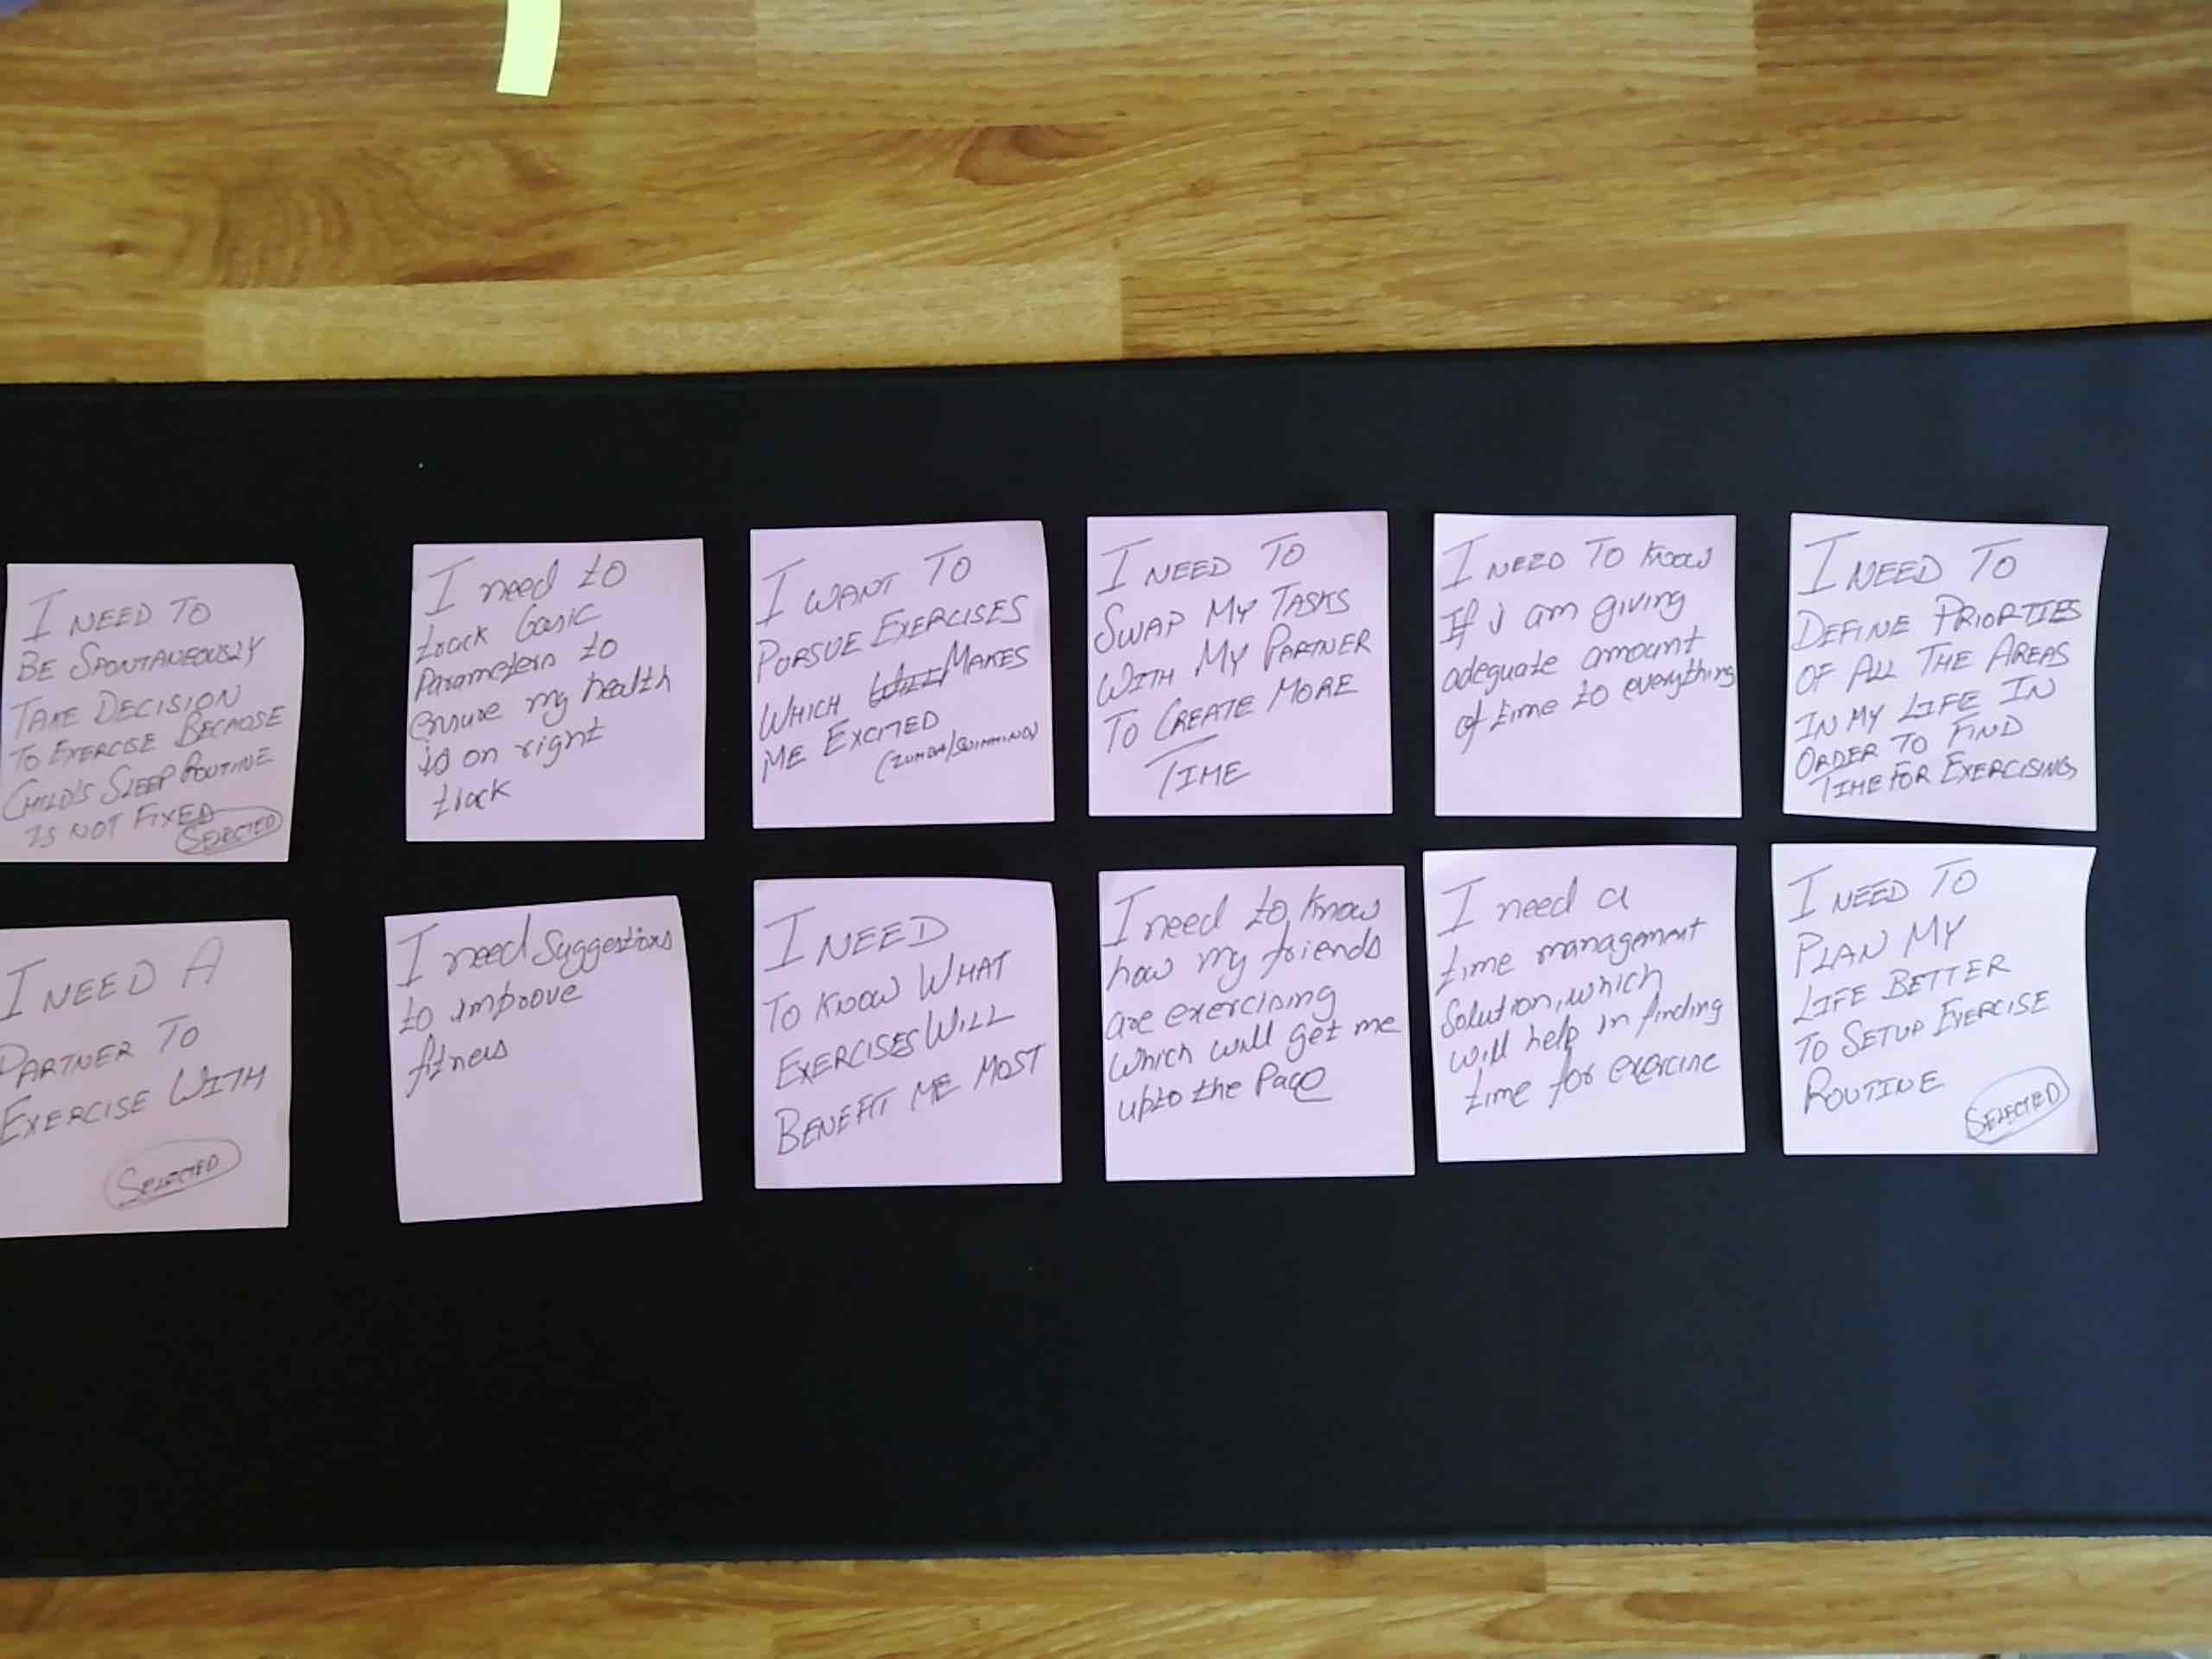 I NEED TO
BE SPONTANEOUSLY
TAKE DECISION
TO EXERCISE BECAUSE
CHILD'S SLEEP ROUTINE
IS NOT FIXED
SELECTED
I need to
track basic
Parameters to
ensure my health
is on right
track
I WANT TO
PURSUE EXERCISES
WHICH MAKES
ME EXCITED
(ZUMBA/SWIMMING)
I NEED TO
SWAP MY TASKS
WITH MY PARTNER
TO CREATE MORE
TIME
I NEED TO Know
If i am giving
adequate amount
of time to everything
I NEED TO
DEFINE PRIORTIES
OF ALL THE AREAS
IN MY LIFE IN
ORDER TO FIND
TIME FOR EXERCISING
I NEED A
PARTNER TO
EXERCISE WITH
SELECTED
I need Suggestions
to improve
fitness
I NEED
TO KNOW WHAT
EXERCISES WILL
BENEFIT ME MOST
I need to know
how my friends
are exercising
which will get me
upto the Pace
I need a
time management
Solution, which
will help in finding
time for exercise
I NEED TO
PLAN MY
LIFE BETTER
TO SETUP EXERCISE
ROUTINE
SELECTED